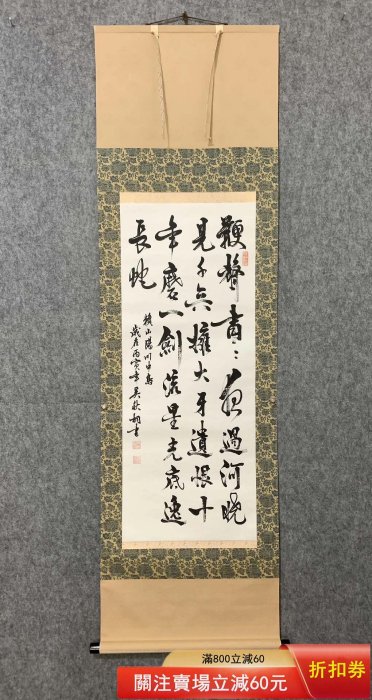 鞭聲肅〻夜過河曉
見千兵擁大牙遺恨十
年磨一劍流星光底逸
長蛇
賴山陽川中島
歲在丙寅書
滿800立減60
關注賣場立減60元
折扣券